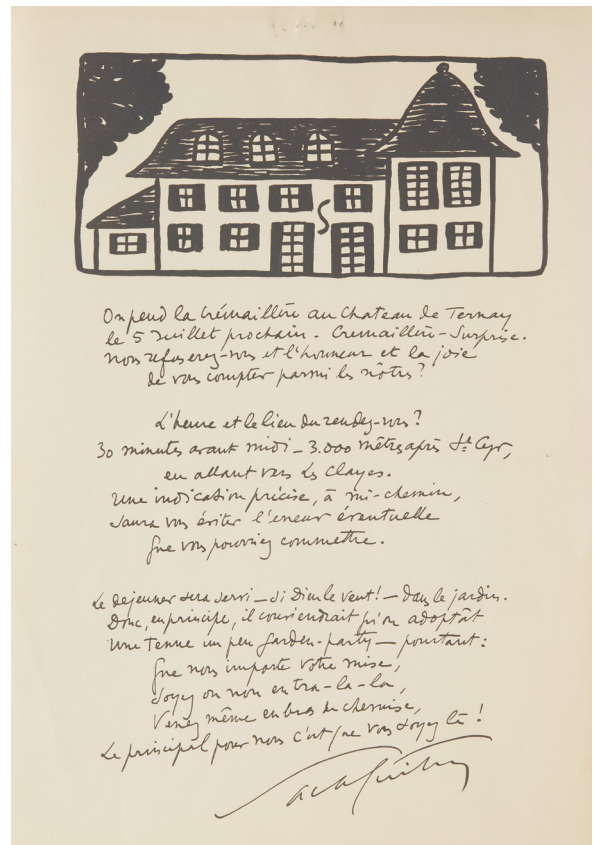 On pend la Crémaillère au Chateau de Ternay
le 5 Juillet prochain. Cremaillère-Surprise.
nous refuserez-vous et l'honneur et la joie
de vous compter parmi les nôtres?
L'heure et le lieu du rendez-vous?
30 minutes avant midi – 3.000 mètres après St Cyr,
en allant vers Les Clayes.
Une indication précise, à mi-chemin,
saura vous éviter l'erreur éventuelle
que vous pourriez commettre.
Le dejeuner sera servi – si Dieu le veut! – dans le jardin.
Donc, en principe, il conviendrait qu'on adoptât
une tenue un peu garden-party – pourtant:
que nous importe votre mise,
Soyez ou non en tra-la-la,
Venez même en bras de chemise,
Le principal pour nous c'est que vous soyez là!
Sacha Guitry